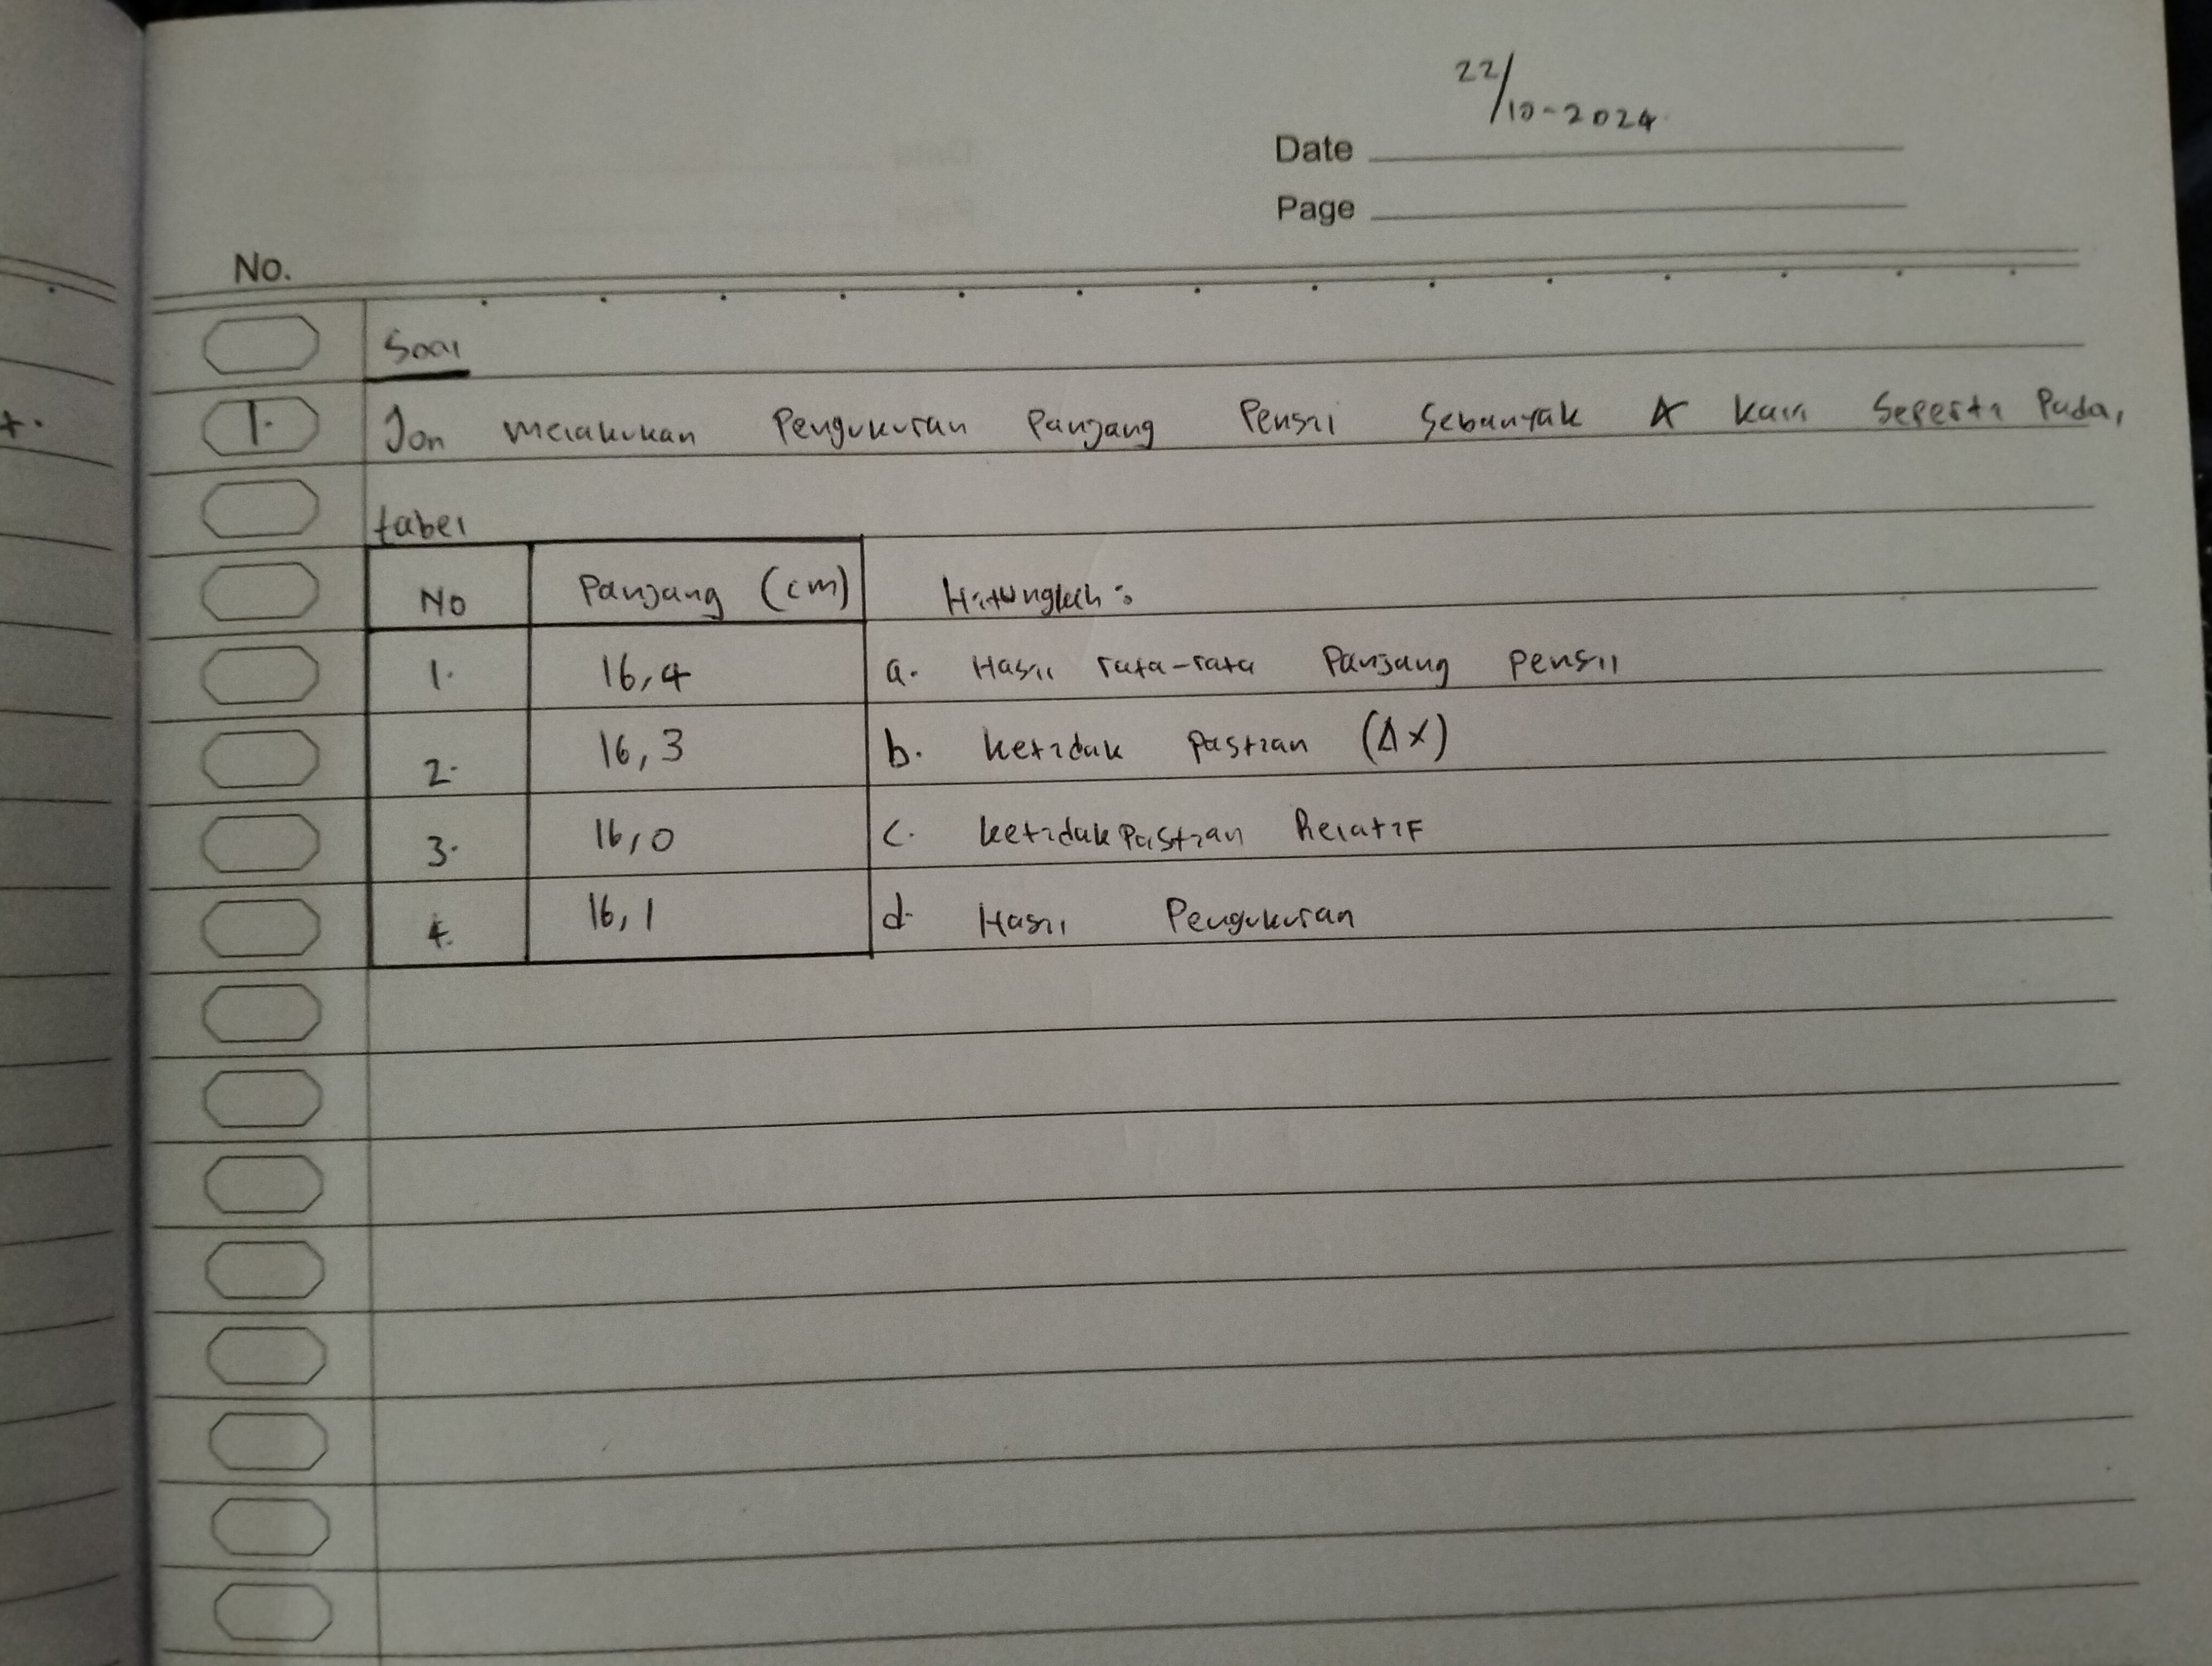 22/10-2024
Date
Page
No.
Soal
1. Jon melakukan Pengukuran Panjang Pensil Sebanyak 4 kali seperti Pada,
tabel
No Panjang (cm) Hitunglah :
1. 16,4 a. Hasil rata-rata Panjang pensil
2. 16,3 b. ketidak pastian (Δx)
3. 16,0 c. ketidakpastian Relatif
4. 16,1 d. Hasil Pengukuran